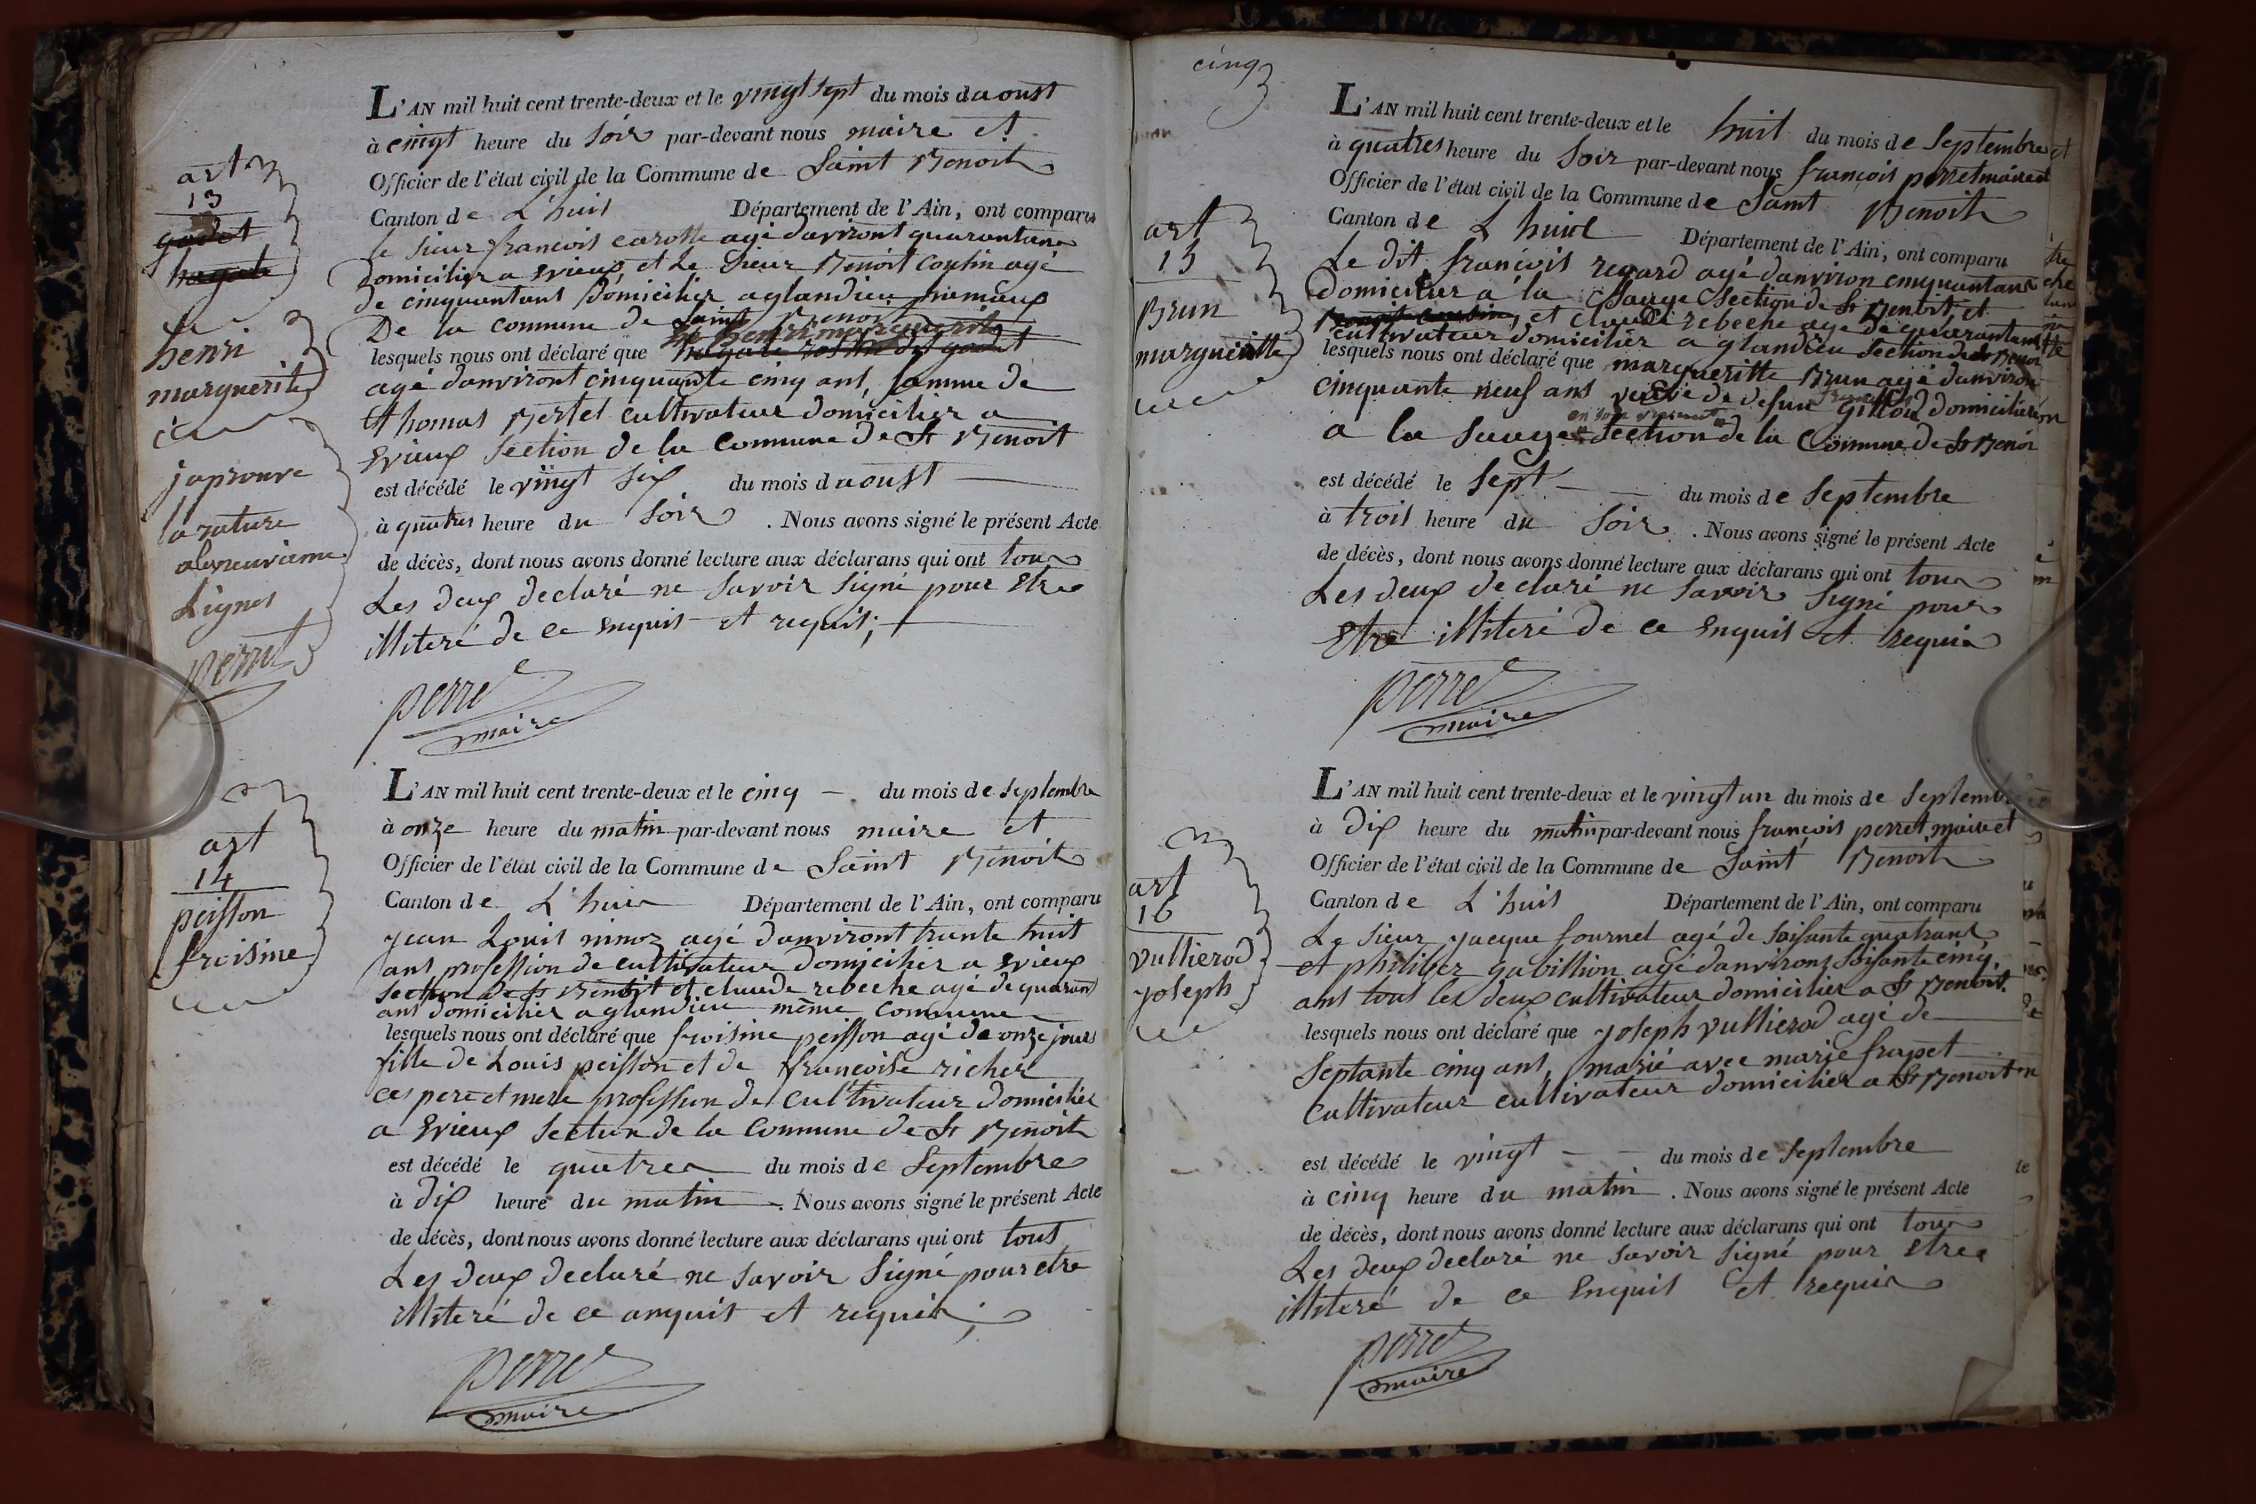 art
13
henri
marguerite
japrouve
la rature
Lignes
perret
L'AN mil huit cent trente-deux et le vingt sept du mois daoust
à cinqt heure du soir par-devant nous maire et
Officier de l'état civil de la Commune de Saint Benoit
Canton de L'huis Département de l'Ain, ont comparu
le sieur francois carotte agé daviront quarantans
domicilier a Evieux et le sieur Benoit Coulin agé
de cinquantans domicilier a glandieu hameaux
De la commune de Saint Benoit
lesquels nous ont déclaré que henri marguerite
agé danviront cinquante cinq ans famme de
thomas Bertet cultivateur domicilier a
Evieux Section de la Commune de St Benoit
est décédé le vingt six du mois daoust
à quatres heure du Soir . Nous avons signé le présent Acte
de décès, dont nous avons donné lecture aux déclarans qui ont tous
Les deux declaré ne savoir signé pour Etre
illiteré de ce enquis et requis;
perret
maire
art
14
peisson
froisine
L'AN mil huit cent trente-deux et le cinq du mois de septembre
à onze heure du matin par-devant nous maire et
Officier de l'état civil de la Commune de Saint Benoit
Canton de L'huis Département de l'Ain, ont comparu
jean Louis ninoz agé danviront trente huit
ans profession de cultivateur domicilier a Evieux
section de St Benoit et claude rebeche agé de quarant
ans domicilier a glandieu même commune
lesquels nous ont déclaré que froisine peisson agé de onze jours
fille de Louis peisson et de francoise richer
ces pere et mere profession de cultivateur domicilier
a Evieux section de la Commune de St Benoit
est décédé le quatres du mois de Septembre
à dix heure du matin . Nous avons signé le présent Acte
de décès, dont nous avons donné lecture aux déclarans qui ont tous
Les deux declaré ne savoir signé pour etre
illiteré de ce anquis et requis;
perret
maire
cinq
art
15
Brun
marguerite
L'AN mil huit cent trente-deux et le huit du mois de Septembre
à quatres heure du Soir par-devant nous francois perret maire et
Officier de l'état civil de la Commune de Saint Benoit
Canton de L'huis Département de l'Ain, ont comparu
Le dit francois regard agé danviron cinquantans
domicilier a la Sauge Section de St Benoit, et
et claude rebeche age de quarantans
cultivateur domicilier a glandieu section de St Benoit
lesquels nous ont déclaré que margueritte Brun agé danviron
cinquante neuf ans veuve de defun francois gillou domicilier
a la sauge Section de la Commune de St Benoit
est décédé le Sept du mois de Septembre
à trois heure du Soir . Nous avons signé le présent Acte
de décès, dont nous avons donné lecture aux déclarans qui ont tous
Les deux declaré ne savoir signé pour
Etre illiteré de ce Enquis et requis
perret
maire
art
16
vullierod
joseph
L'AN mil huit cent trente-deux et le vingt un du mois de Septembre
à dix heure du matin par-devant nous francois perret maire et
Officier de l'état civil de la Commune de Saint Benoit
Canton de L'huis Département de l'Ain, ont comparu
Le sieur jacque fournel agé de soisante quatrans
et philiber gabillion agé danvirons soisante cinq
ans tous les deux cultivateur domicilier a St Benoit
lesquels nous ont déclaré que joseph vullierod agé de
septante cinq ans, marié avec marie frapet
cultivateur cultivateur domicilier a St Benoit
est décédé le vingt du mois de septembre
à cinq heure du matin . Nous avons signé le présent Acte
de décès, dont nous avons donné lecture aux déclarans qui ont tous
Les deux declaré ne savoir signé pour etre
illiteré de ce Enquis et requis
perret
maire